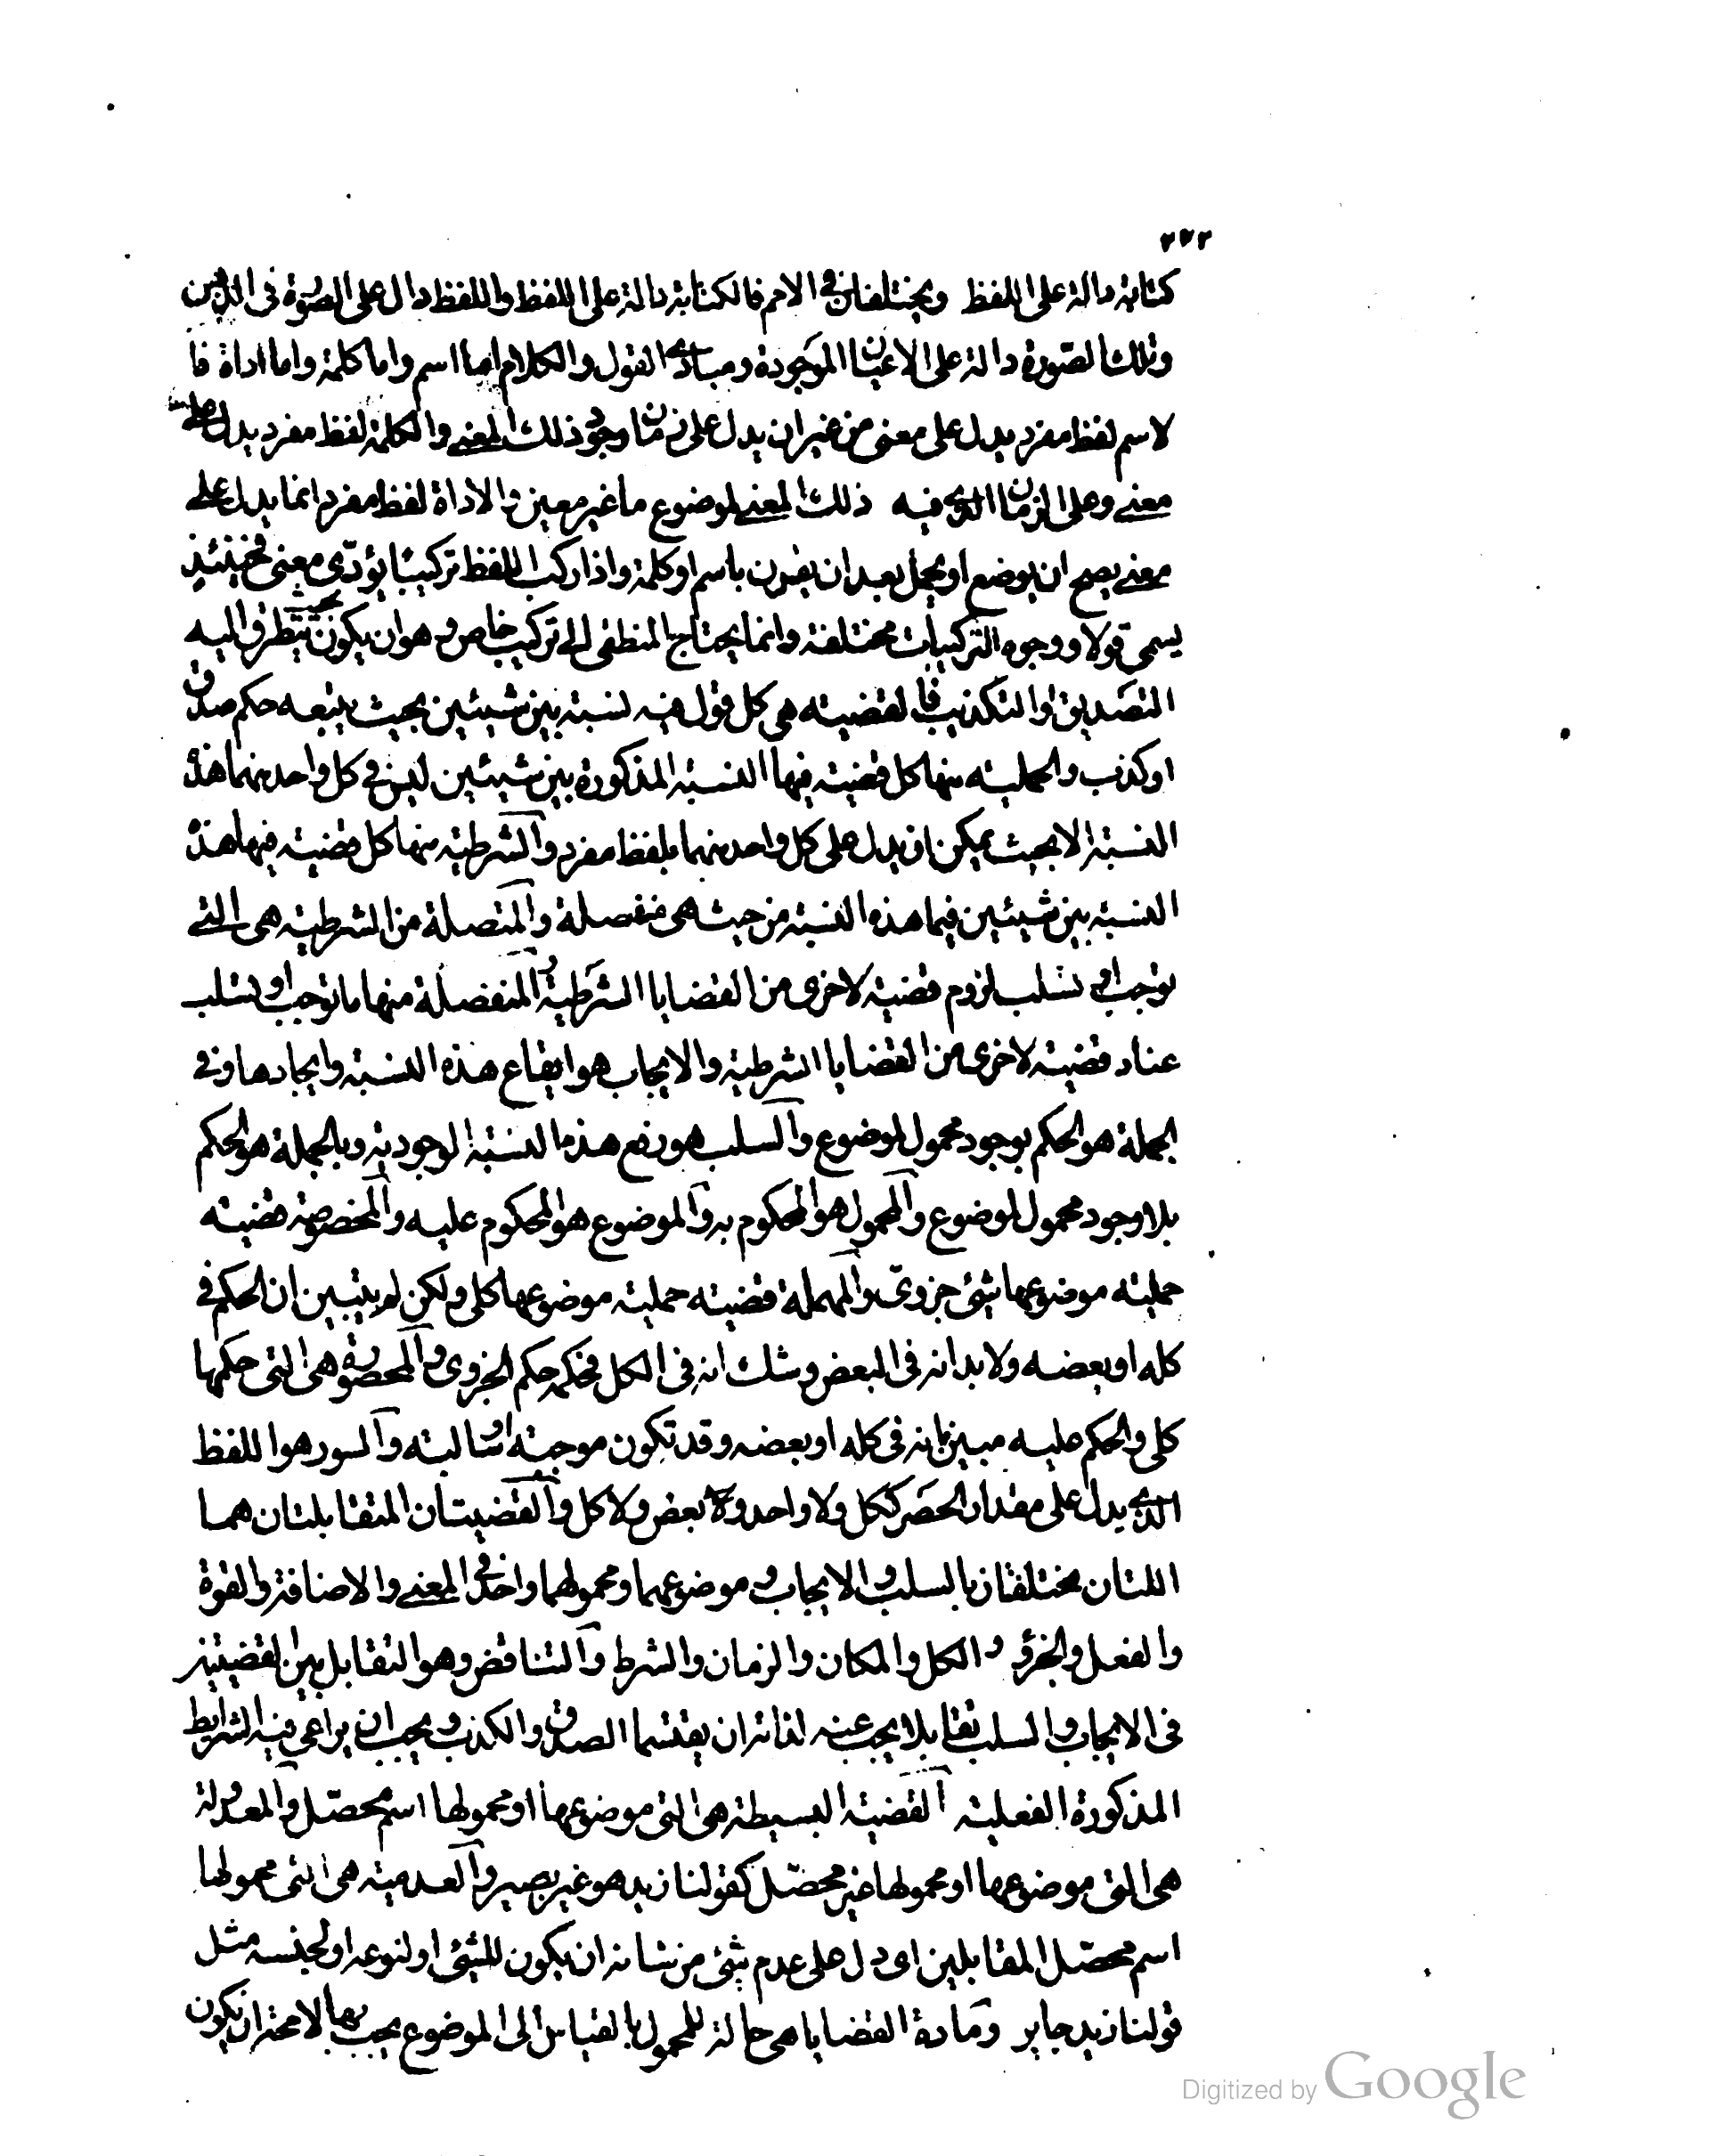 ٣٧٢
كتابة دالة على اللفظ ويختلفان فى الامم فالكتابة دالة على اللفظ واللفظ دال على الصورة فى الذهن
وتلك الصورة دالة على الاعيان الموجودة ومبادى القول والكلام اما اسم واما كلمة واما اداة فا
لاسم لفظ مفرد يدل على معنى من غير ان يدل على زمان وجود ذلك المعنى والكلمة لفظ مفرد يدل على
معنى وعلى الزمان الذى فيه ذلك المعنى لموضوع ما غير معين والاداة لفظ مفرد انما يدل على
معنى يصح ان يوضع او يحمل بعد ان يقرن باسم او كلمة واذا ركب اللفظ تركيبا يؤدى معنى فحينئذ
يسمى قولا ووجوه التركيبات مختلفة وانما يحتاج المنطقى الى تركيب خاص وهو ان يكون بحيث يتطرق اليه
التصديق او التكذيب فالقضية هى كل قول فيه نسبة بين شيئين بحيث يتبعه حكم صدق
او كذب والحملية منها كل قضية فيها النسبة المذكورة بين شيئين ليس فى كل واحد منهما هذه
النسبة الا بحيث يمكن ان يدل على كل واحد منهما بلفظ مفرد والشرطية منها كل قضية فيها هذه
النسبة بين شيئين فيهما هذه النسبة من حيث هى منفصلة والمتصلة من الشرطية هى التى
توجب او تسلب لزوم قضية لاخرى من القضايا الشرطية والمنفصلة منها ما توجب او تسلب
عناد قضية لاخرى من القضايا الشرطية والايجاب هو ايقاع هذه النسبة وايجادها وفى
الجملة هو الحكم بوجود محمول لموضوع والسلب هو رفع هذه النسبة الوجودية وبالجملة هو الحكم
بلا وجود محمول لموضوع والمحمول هو المحكوم به والموضوع هو المحكوم عليه والمخصوصة قضية
حملية موضوعها شئ جزوى والمهملة قضية حملية موضوعها كلى ولكن لم يتبين ان الحكم فى
كله او بعضه ولا بد انه فى البعض وشك انه فى الكل فحكمه حكم الجزوى والمحصورة هى التى حكمها
كلى والحكم عليه مبين بانه فى كله او بعضه وقد تكون موجبة او سالبة والسور هو اللفظ
الذى يدل على مقدار الحصر ككل ولا واحد ولا بعض ولا كل والقضيتان المتقابلتان هما
اللتان مختلفتان بالسلب والايجاب وموضوعهما ومحمولهما واحد فى المعنى والاضافة والقوة
والفعل والجزؤ والكل والمكان والزمان والشرط والتناقض وهو التقابل بين القضيتين
فى الايجاب والسلب تقابلا يجب عنه لذاته ان يقتسما الصدق والكذب ويجب ان يراعى فيه الشرايط
المذكورة الفعلية القضية البسيطة هى التى موضوعها او محمولها اسم محصل والمعدولة
هى التى موضوعها او محمولها غير محصل كقولنا زيد هو غير بصير والعدمية هى التى محمولها
اسم محصل المقابلين اى دل على عدم شئ من شانه ان يكون للشئ او لنوعه او لجنسه مثل
قولنا زيد جاير ومادة القضايا هى حالة للمحمول بالقياس الى الموضوع يجب بها لا محة ان يكون
Digitized by Google